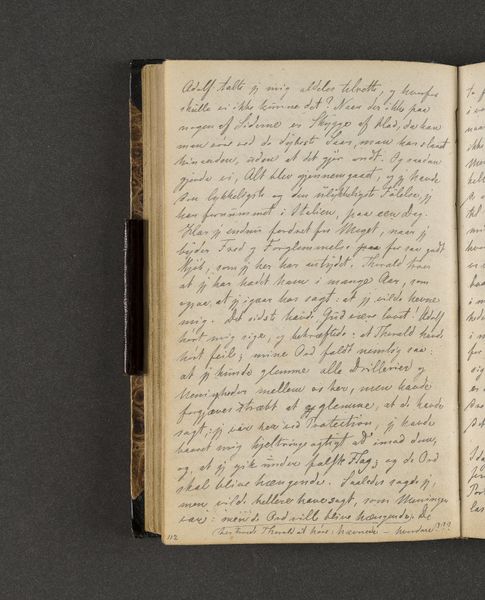 Adolf talte jeg mig aldeles tilrette, og hvorfor
skulle vi ikke kunne det? Naar der ikke paa
nogen af Siderne er Skygge af Had, da kan
man röre ved de dybeste Saar, man har slaaet
hinanden, uden at det gjör ondt. Og saadan
gjorde vi, Alt blev gjennemgaaet, og jeg havde
den lykkeligste og den ulykkeligste Følelse, jeg
har fornummet i Italien, paa een Dag.
Har jeg endnu fordret for Meget, naar jeg
byder Fred og Forglemmelse for saa godt
Kjöb, som jeg her har antydet. Thorald troer
at jeg har hadt ham i mange Aar, som
og at jeg igaar har sagt: at jeg vilde hevne
mig. Det sidste har, Gud være lovet! Adolf
hört mig sige, og bekræftede: at Thorald havde
hört feil; mine Ord faldt nemlig saa:
at jeg kunde glemme alle Drillerier og
Uenigheder mellem os her, men havde
forgjæves stræbt at glemme, at de havde
sagt: jeg var her ved Protection, jeg havde
baaret mig hjeltringeagtigt ad imod dem,
og, at jeg gik under falsk Flag; og de Ord
skal blive hængende. Saaledes sagde jeg,
men vilde hellere have sagt, som Meningen
var: men de Ord ville blive hængende. De
(her troede Thorald at høre: hævnede - hævdare???
112